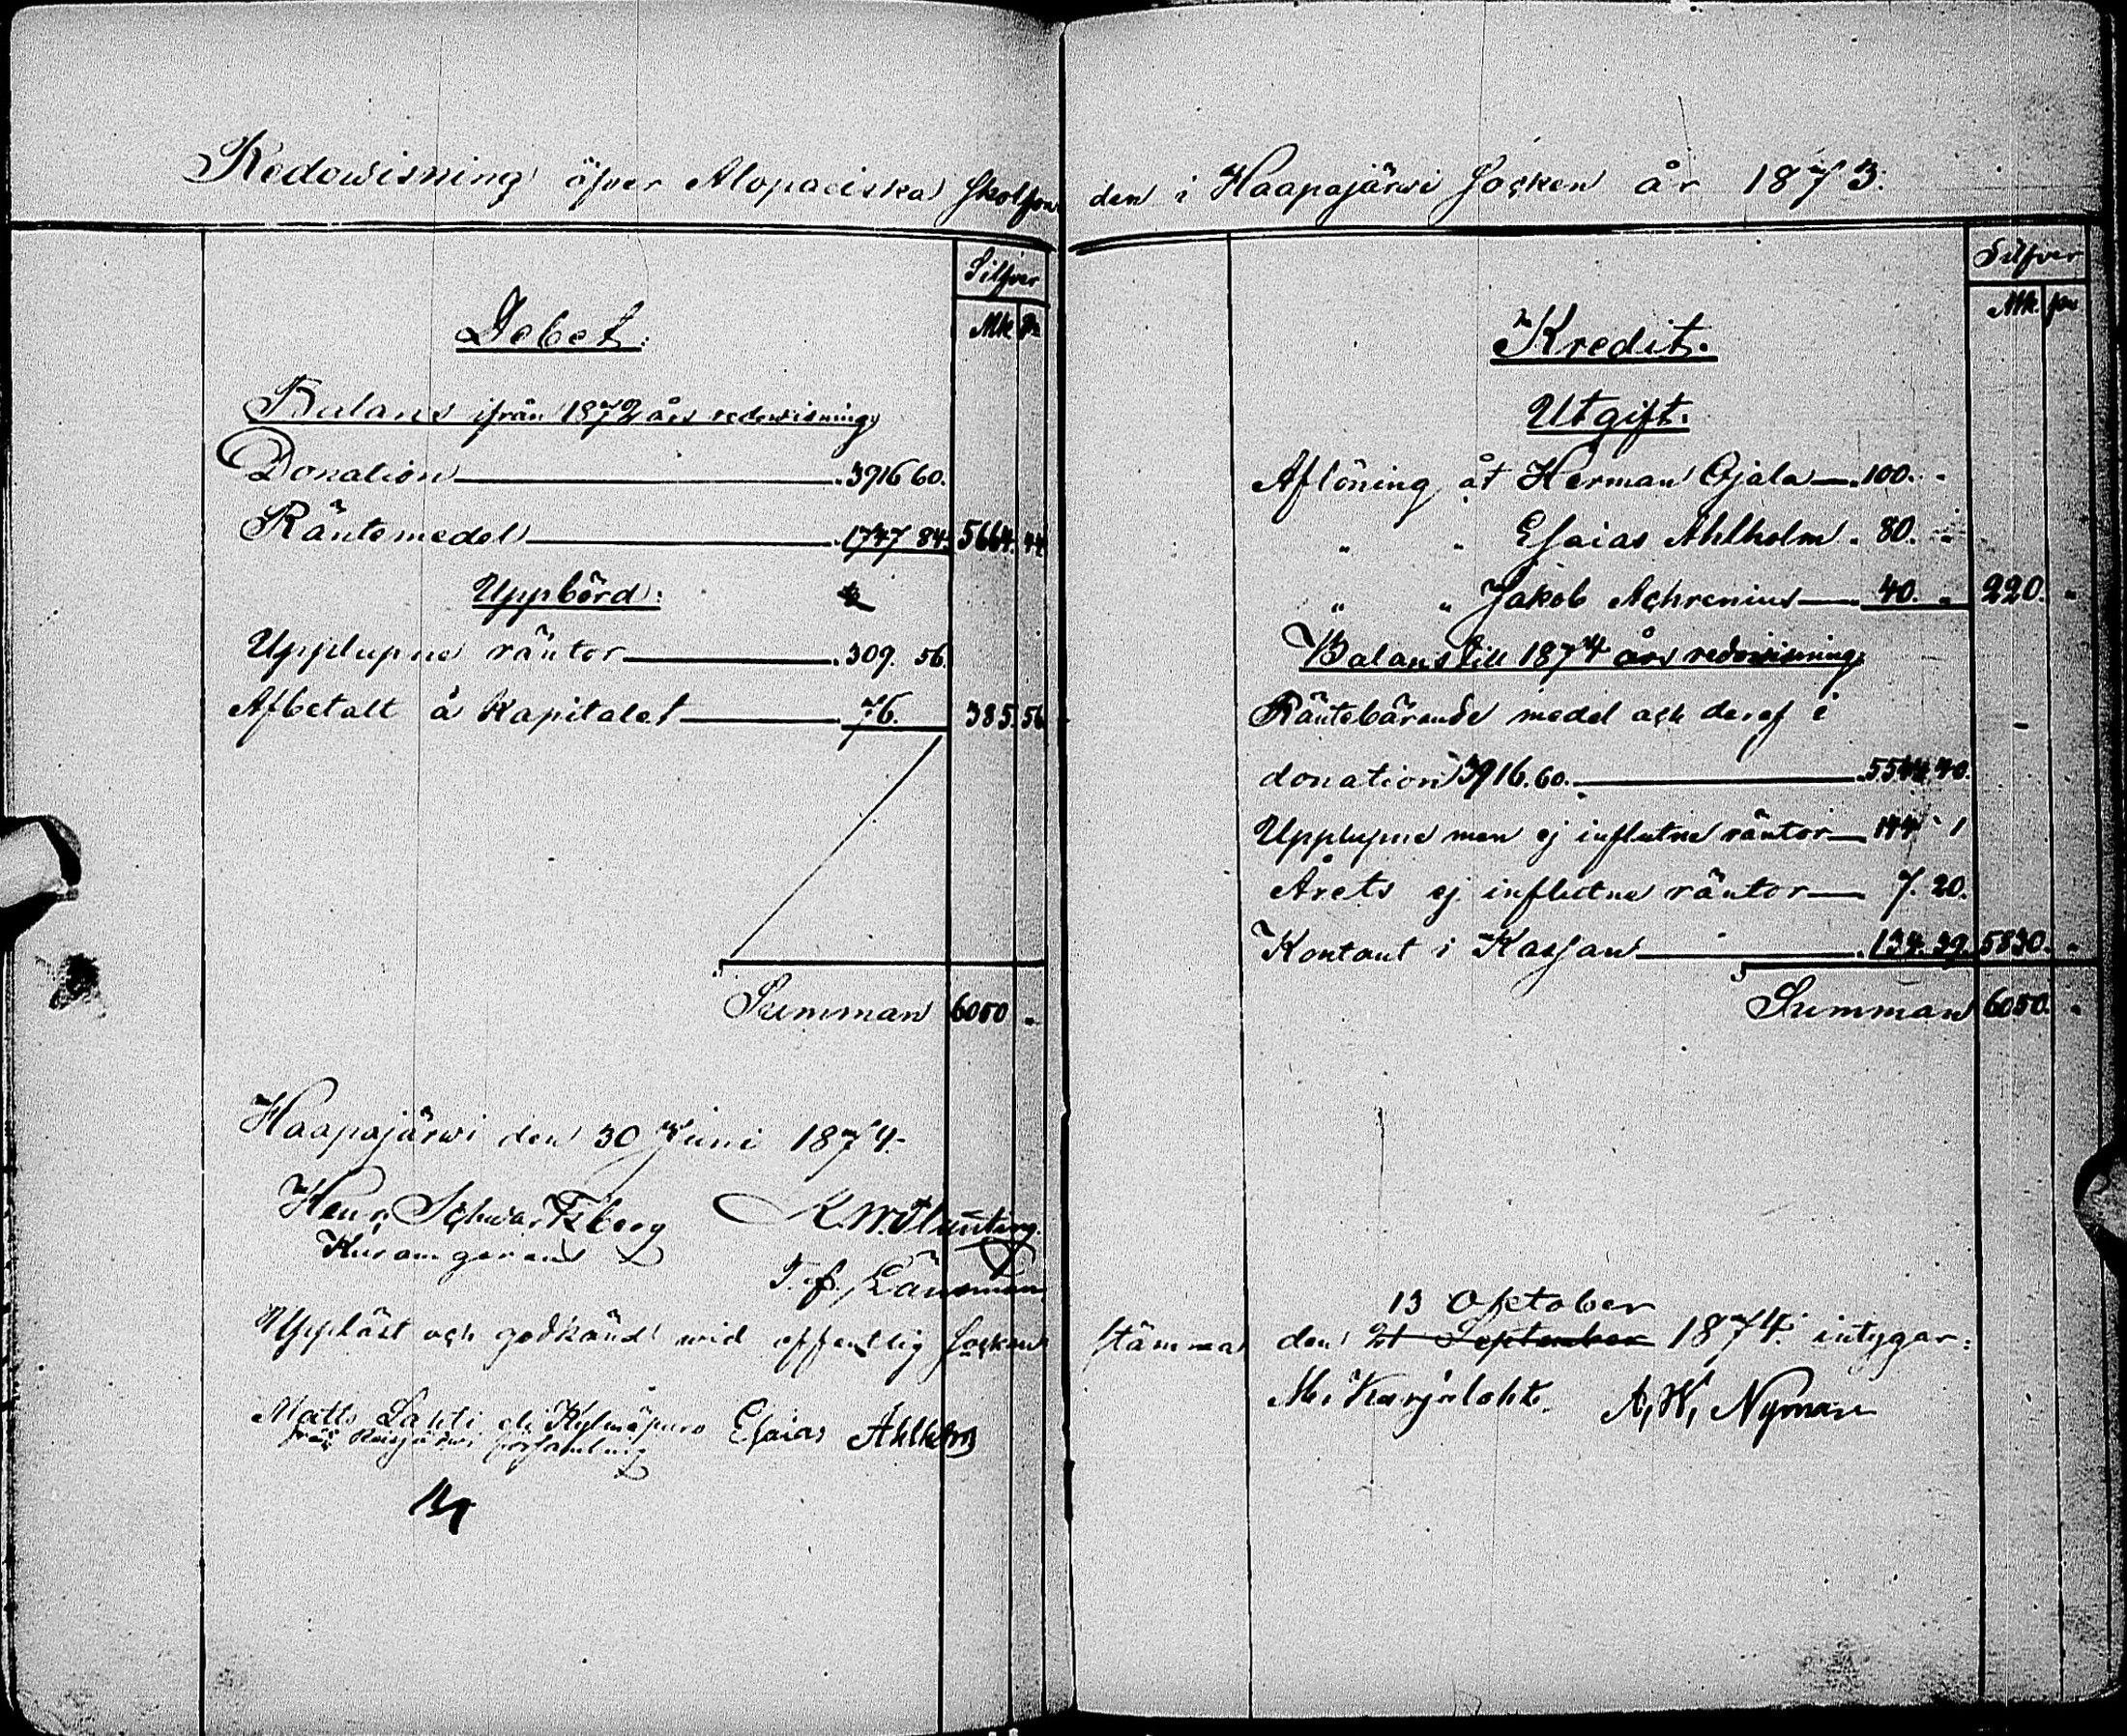 Redowisning öfver Alopaeiska skolfon
den i Haapajärwi socken år 1873.
Silfver
Mk p:i
Debet.
Balans ifrån 1872 års redowisning
Donation 3916 60.
Räntemedel 1747 84. 5664. 44
Uppbörd:
Upplupne räntor 309. 56
Afbetalt å Kapitalet 76. 385. 56
Summan 6050 "
Haapajärwi den 30 Juni 1874.
Henr. Schwartzberg
K. W.
T. f. Länsman
Uppläst och godkänd wid offentlig socken
Matts Lahti
Esaias Ahlholm
från Reisjärwi församling
Silfver
Mk. p:i
Kredit.
Utgift.
Aflöning åt Herman Ojala 100. "
" " Esaias Ahlholm. 80. "
" " Jakob Achrenius 40. " 220. "
Balans till 1874 års redowisning
Räntebärande medel och deraf i
donation 3916.60. 5544.40.
Upplupne men ej influtne räntor 144 1
Årets ej influtne räntor 7. 20.
Kontant i Kassan 134. 39. 5830. "
Summan 6050. "
13 Oktober
stämma den 21 September 1874 intygar:
M. Karjalahti. A. K. Nyman